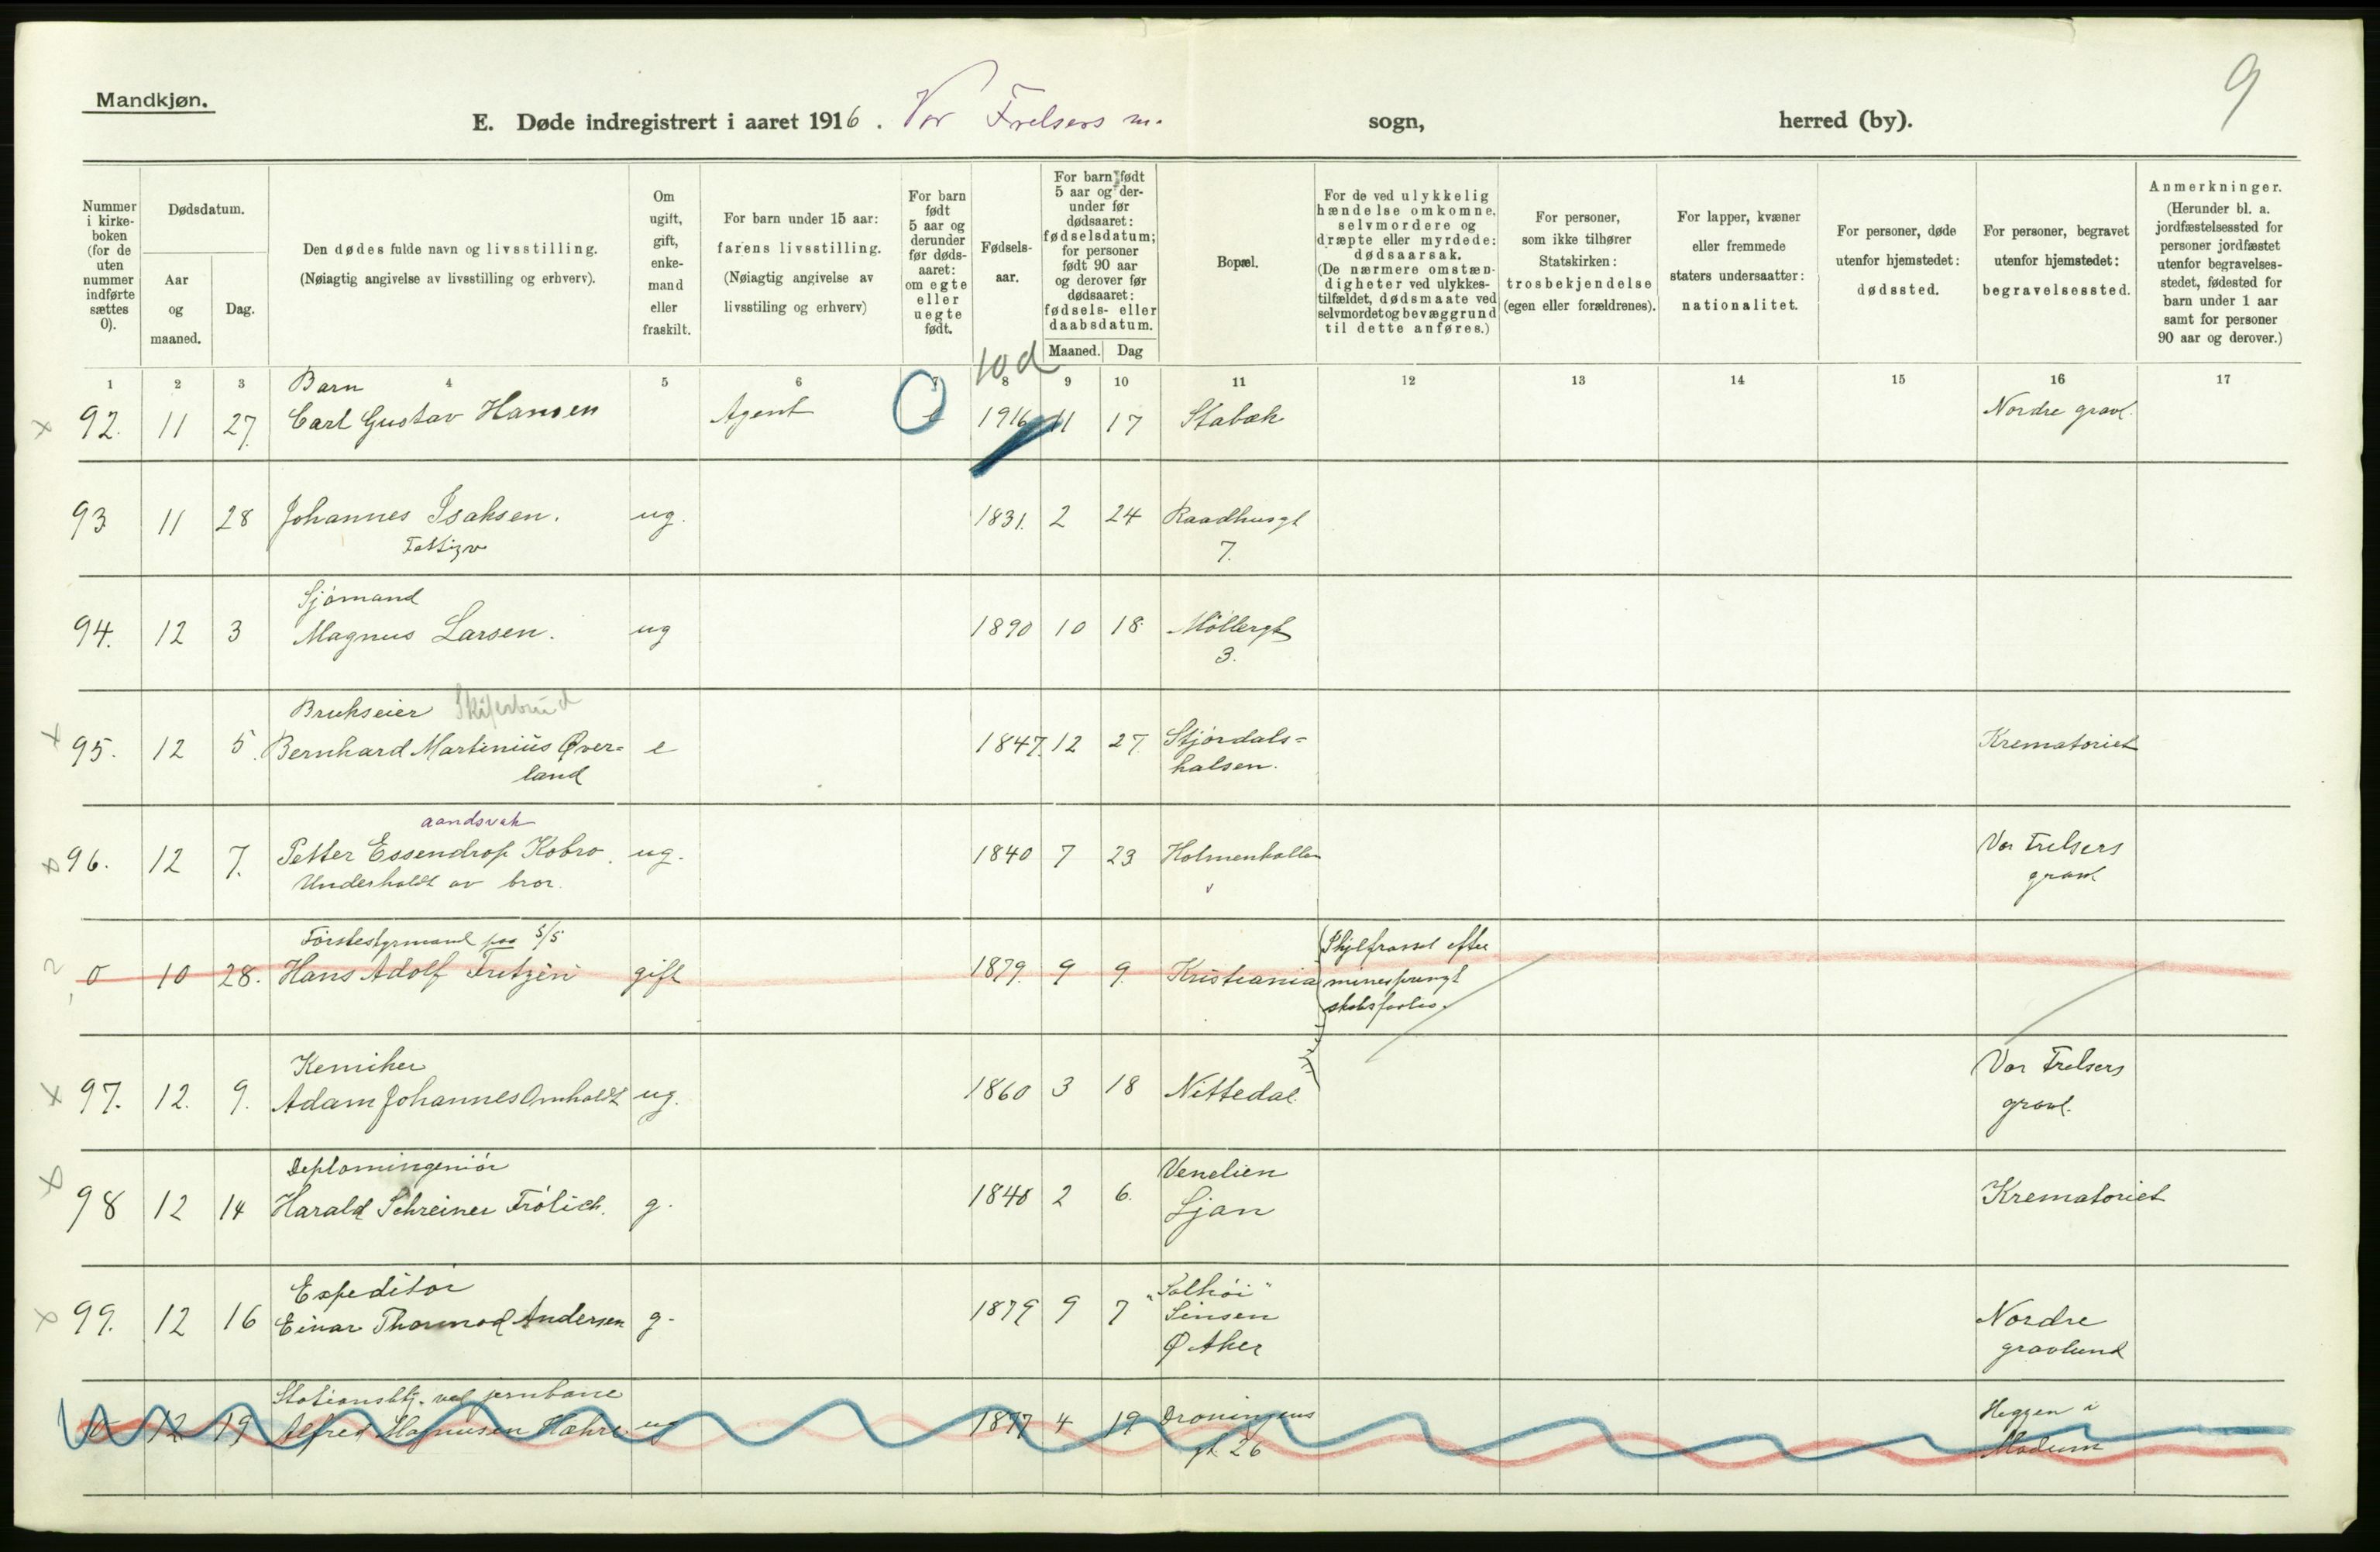 9
Mandkjøn.
E. Døde indregistrert i aaret 1916. Vor Frelsers m. sogn, herred (by).
Nummer i kirkeboken (for de uten nummer indførte sættes 0).
Dødsdatum.
Aar og maaned.
Dag.
Den dødes fulde navn og livsstilling.
(Nøiagtig angivelse av livsstilling og erhverv).
Om ugift, gift, enkemand eller fraskilt.
For barn under 15 aar: farens livsstilling. (Nøiagtig angivelse av livsstiling og erhverv)
For barn født 5 aar og derunder før dødsaaret: om egte eller uegte født.
Fødselsaar.
For barn født 5 aar og derunder før dødsaaret: fødselsdatum; for personer født 90 aar og derover før dødsaaret: fødsels- eller daabsdatum.
Maaned. Dag
Bopæl.
For de ved ulykkelig hændelse omkomne, selvmordere og dræpte eller myrdede: dødsaarsak. (De nærmere omstændigheter ved ulykkestilfældet, dødsmaate ved selvmordet og bevæggrund til dette anføres.)
For personer, som ikke tilhører Statskirken: trosbekjendelse (egen eller forældrenes).
For lapper, kvæner eller fremmede staters undersaatter: nationalitet.
For personer, døde utenfor hjemstedet: dødssted.
For personer, begravet utenfor hjemstedet: begravelsessted.
Anmerkninger. (Herunder bl. a. jordfæstelsessted for personer jordfæstet utenfor begravelsesstedet, fødested for barn under 1 aar samt for personer 90 aar og derover.)
1 2 3 4 5 6 7 8 9 10 11 12 13 14 15 16 17
Barn 10 d
x 92. 11 27. Carl Gustav Hansen Agent e 1916 11 17 Stabæk Nordre gravl.
93 11 28 Johannes Isaksen. ug. 1831. 2 24 Raadhusgt
Fattigv 7.
Sjømand
94. 12 3 Magnus Larsen. ug 1890 10 18 Møllergt
3.
Brukseier
x 95. 12 5. Bernhard Martinius Øver= e 1847. 12 27. Stjørdals= Krematoriet
land halsen.
aandsvak
x 96. 12 7. Petter Essendrop Kobro. ug. 1840 7 23 Holmenkollen Vor Frelsers
Underholdt av bror. gravl
Førstestyrmand paa S/S
0 10 28. Hans Adolf Fretzen gift 1879. 9 9. Kristiania
minesprængt
Kemiker
x 97. 12. 9. Adam Johannes Omholdt ug. 1860 3 18 Nittedal. Vor Frelsers
gravl.
Deplomingeniør Venelien
x 98 12 14 Harald Schreiner Frølich. g. 1840 2 6. Ljan Krematoriet
Expeditør "Solhøi"
x 99. 12 16 Einar Thormod Andersen g. 1879 9 7 Sinsen Nordre
Ø. Aker gravlund
Stationsbtj. ved jernbane
0 12 19 Alfred Magnusen Hæhre. ug 1877 4 19 Dronningens Heggen i
gt 26 Modum